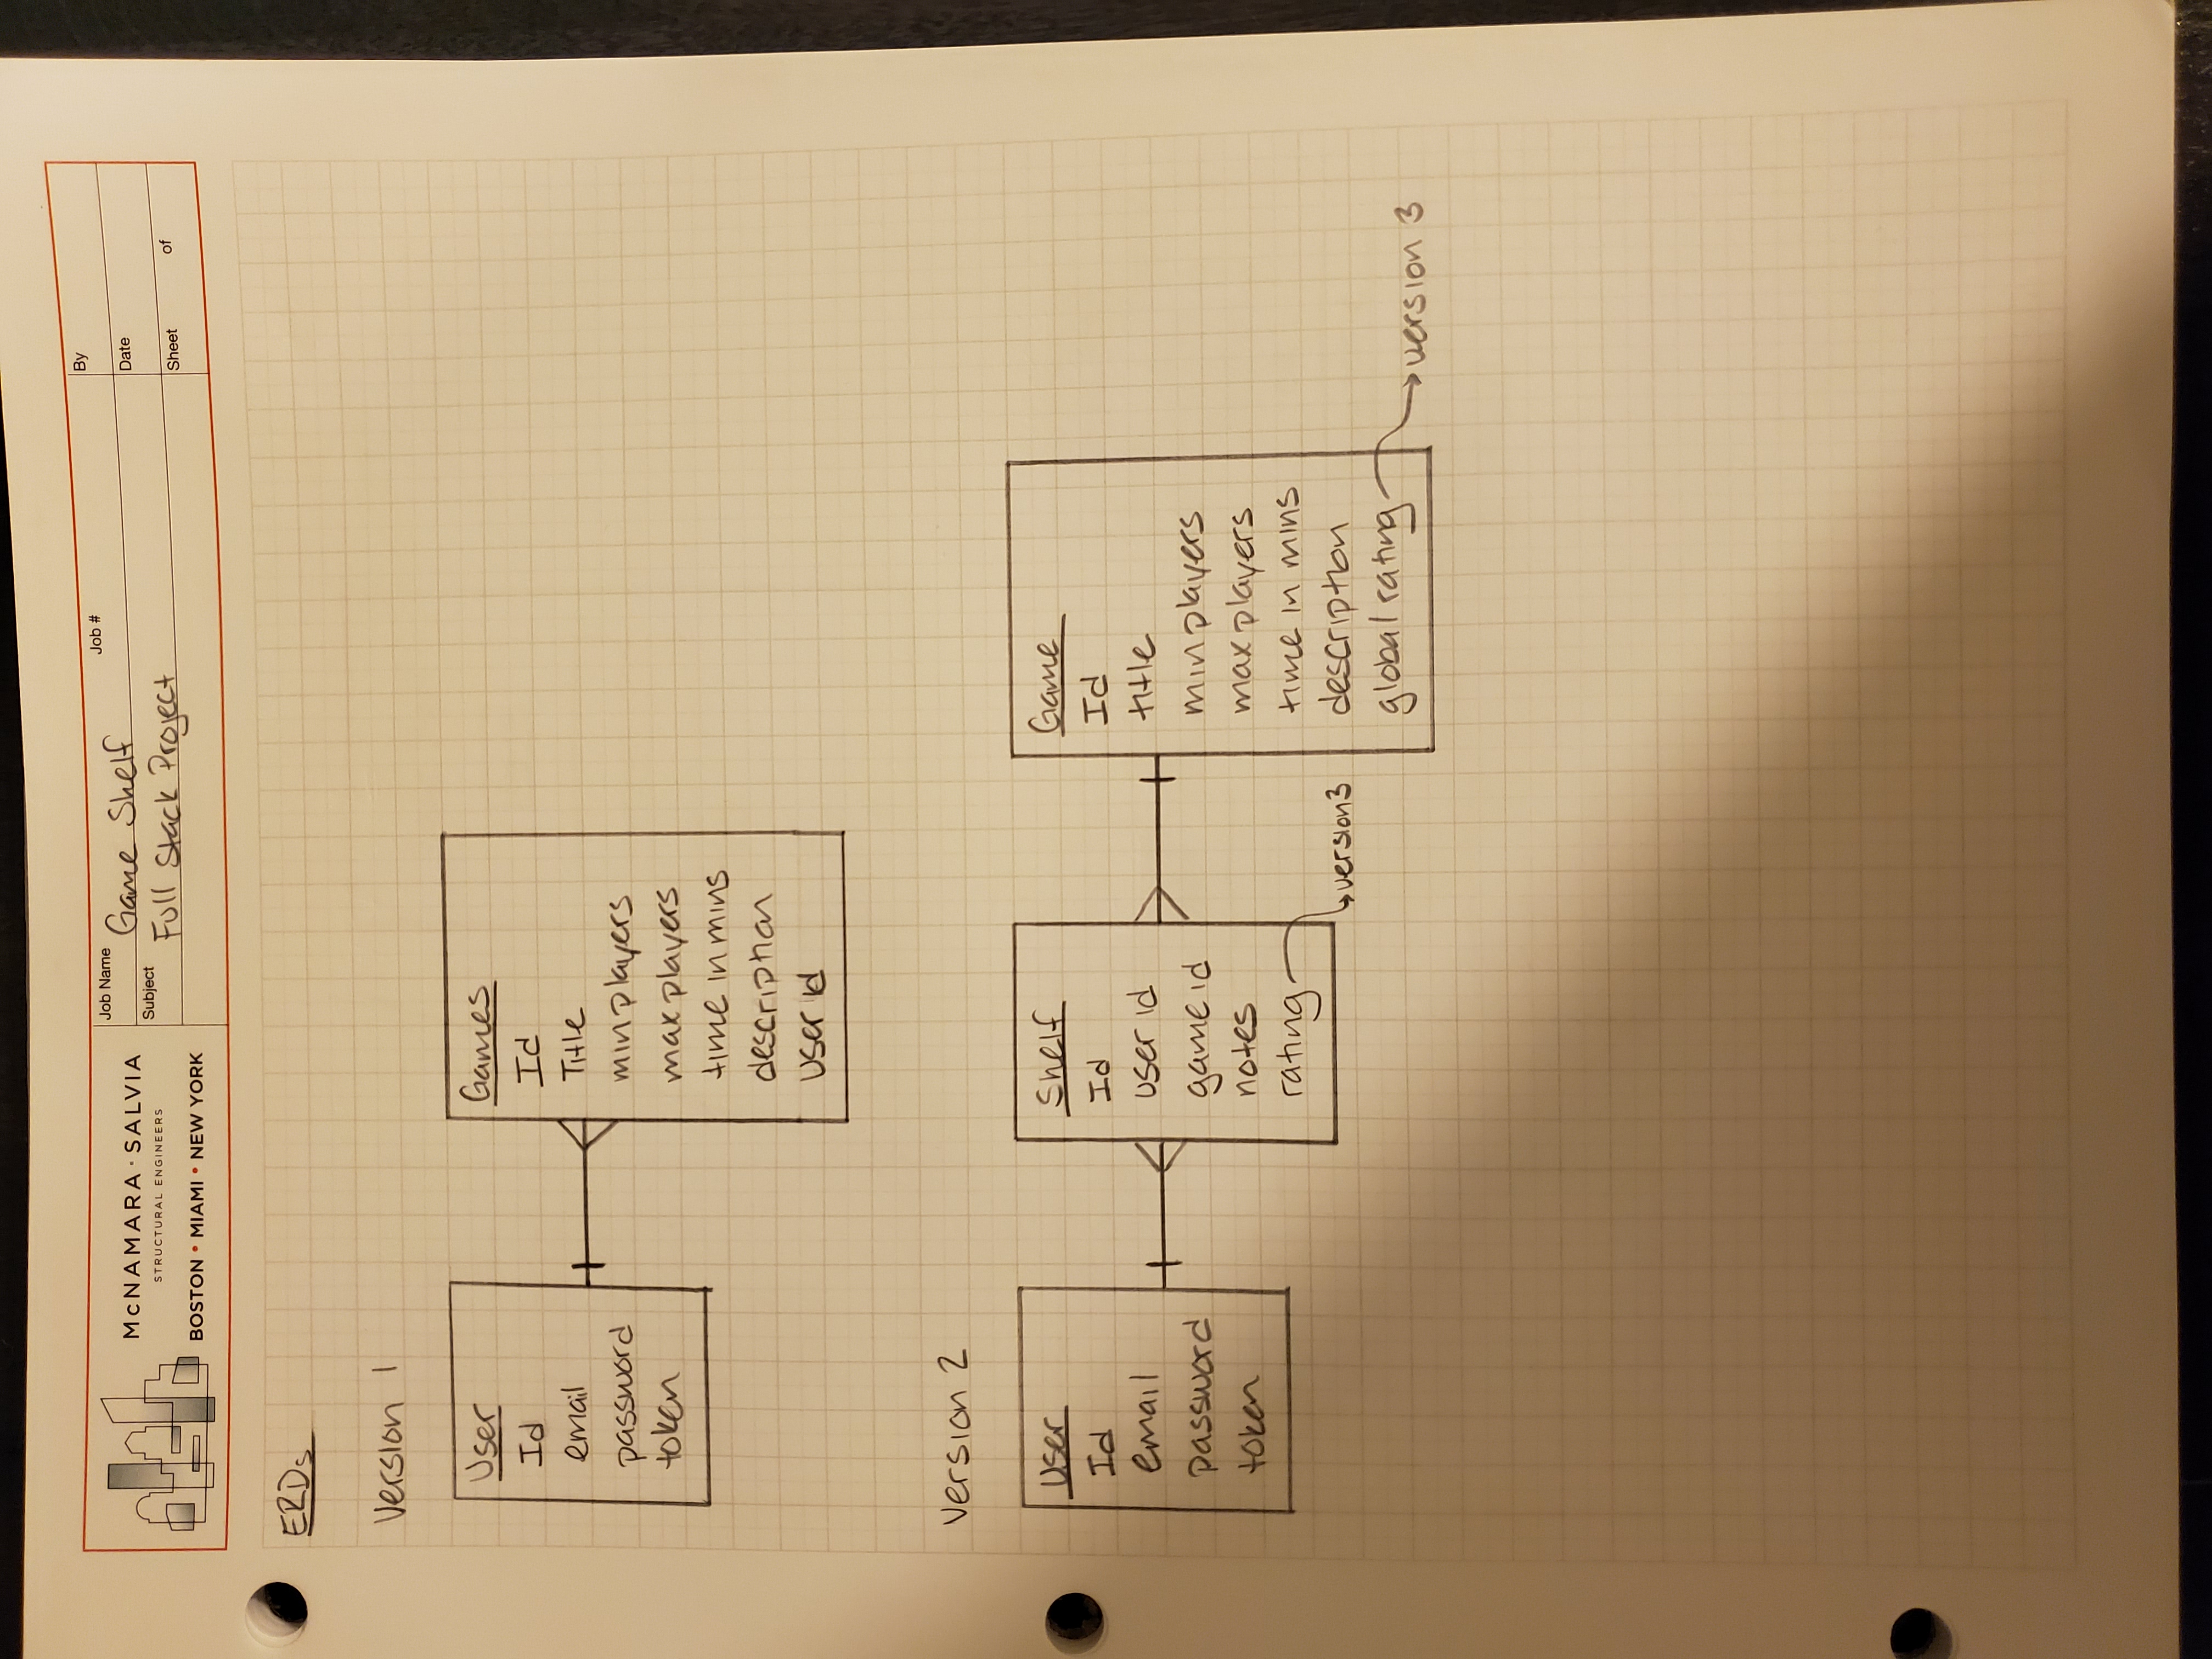 McNAMARA · SALVIA
STRUCTURAL ENGINEERS
BOSTON • MIAMI • NEW YORK
Job Name Game Shelf
Job #
Subject Full Stack Project
By
Date
Sheet of
ERDs
Version 1
User
Id
email
password
token
Games
Id
Title
min players
max players
time in mins
description
User id
Version 2
User
Id
email
password
token
Shelf
Id
user id
game id
notes
rating
version 3
Game
Id
title
min players
max players
time in mins
description
global rating
version 3